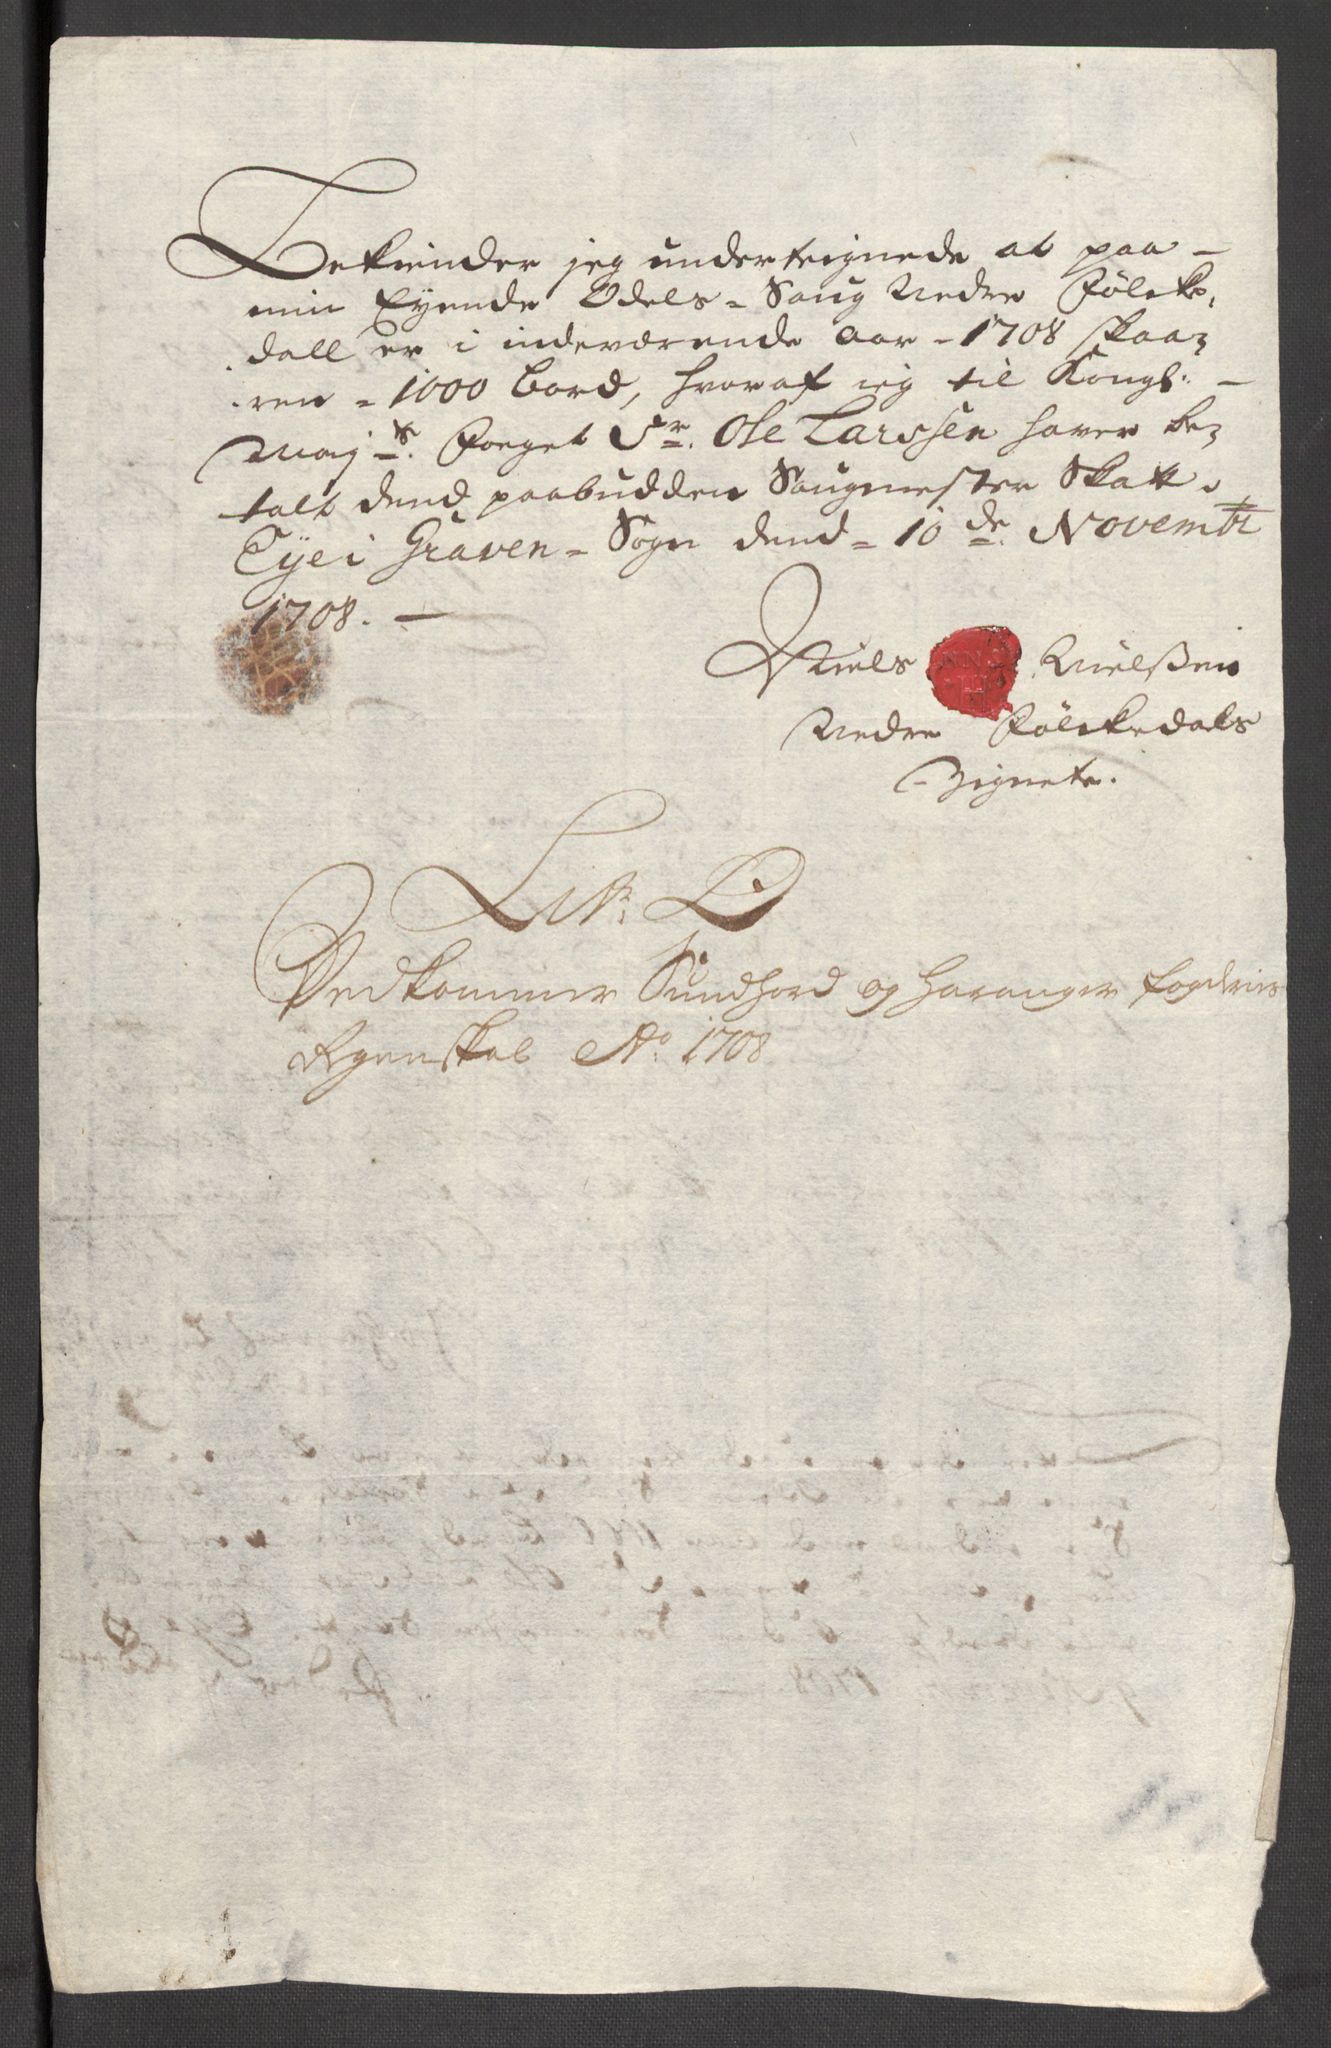 Bekiender jeg underteignede at paa -
min Eyende Odels - Saug Nedre Fölcke,
dall er i indeværende aar - 1708 skaa=
ren - 1000 bord, hvoraf ieg til Kongl: -
Mayts. Foeget Sr. Ole Larssen haver be=
talt dend paabudden Saugmester Skatt.
Eye i Graven - Sogn dend - 10de. Novembr
1708. -
Niels Nielßen
Nedre Fölckedals
Zignete.
Litr: D
Vedkommer Sundhord og Haranger fogderies
Regenskab Ao. 1708